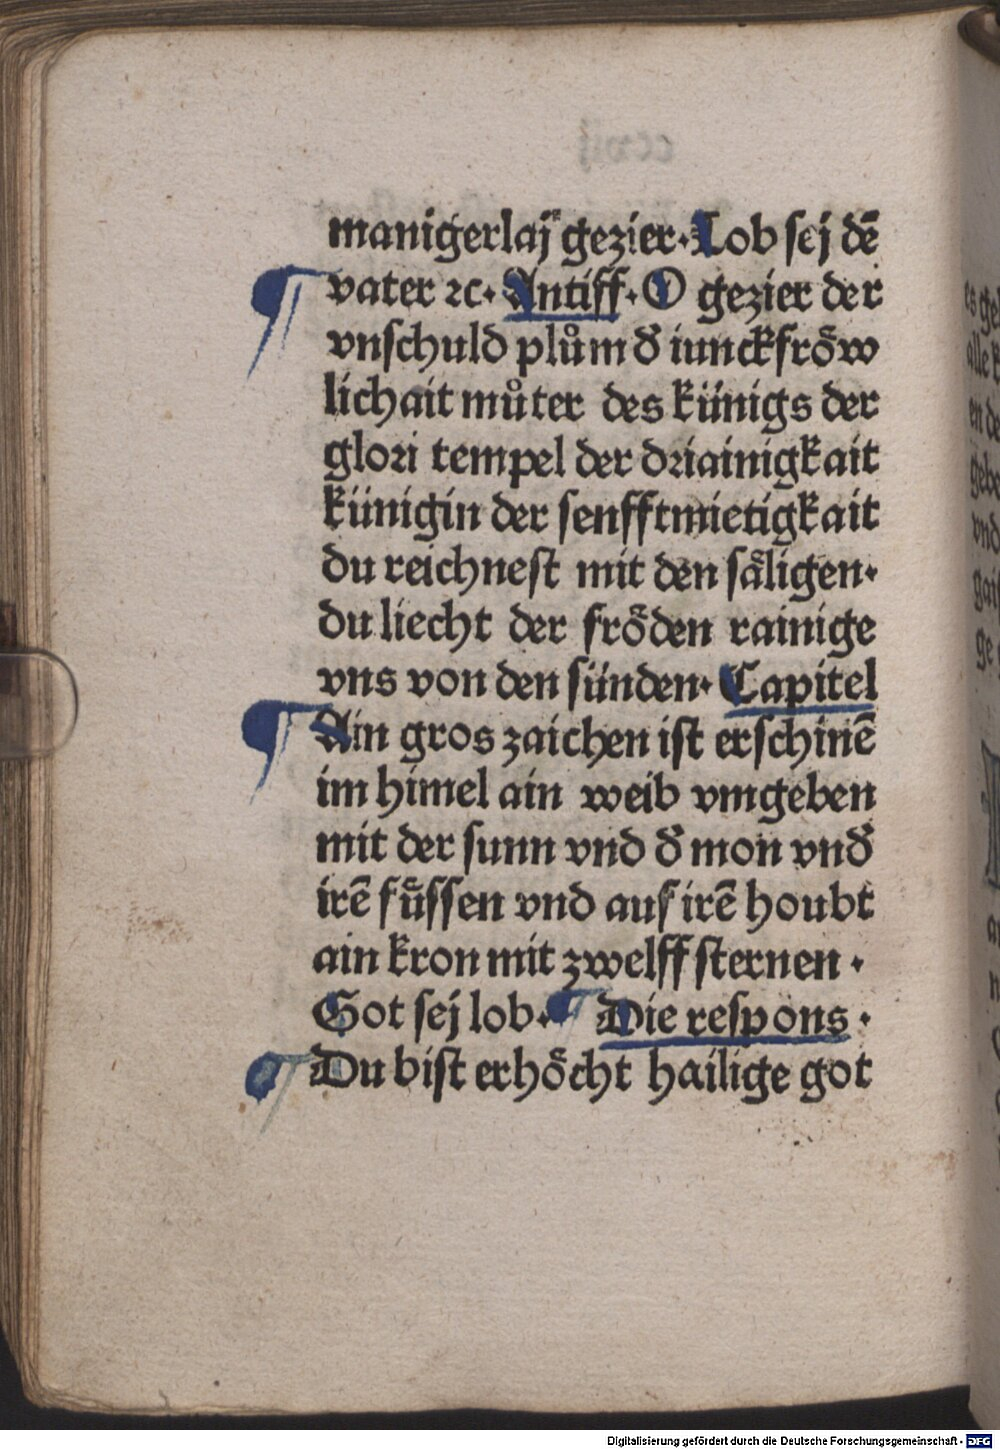 manigerlaÿ gezier· Lob sej dē
¶ vater ⁊c· Antiff· O gezier der
vnschuld plům d̕ iunckfrőw
lichait můter des künigs der
glori tempel der driainigkait
künigin der senfftmietigkait
du reichnest mit den säligen·
du liecht der frőden rainige
vns von den sünden· Capitel
¶ Ain gros zaichen ist erschinē
im himel ain weib vmgeben
mit der sunn vnd d̕ mon vnd̕
irē fůssen vnd auf irē houbt
ain kron mit zwelff sternen ·
Got sej lob· ¶ Die respons ·
¶ Du bist erhőcht hailige got
Digitalisierung gefördert durch die Deutsche Forschungsgemeinschaft - DFG